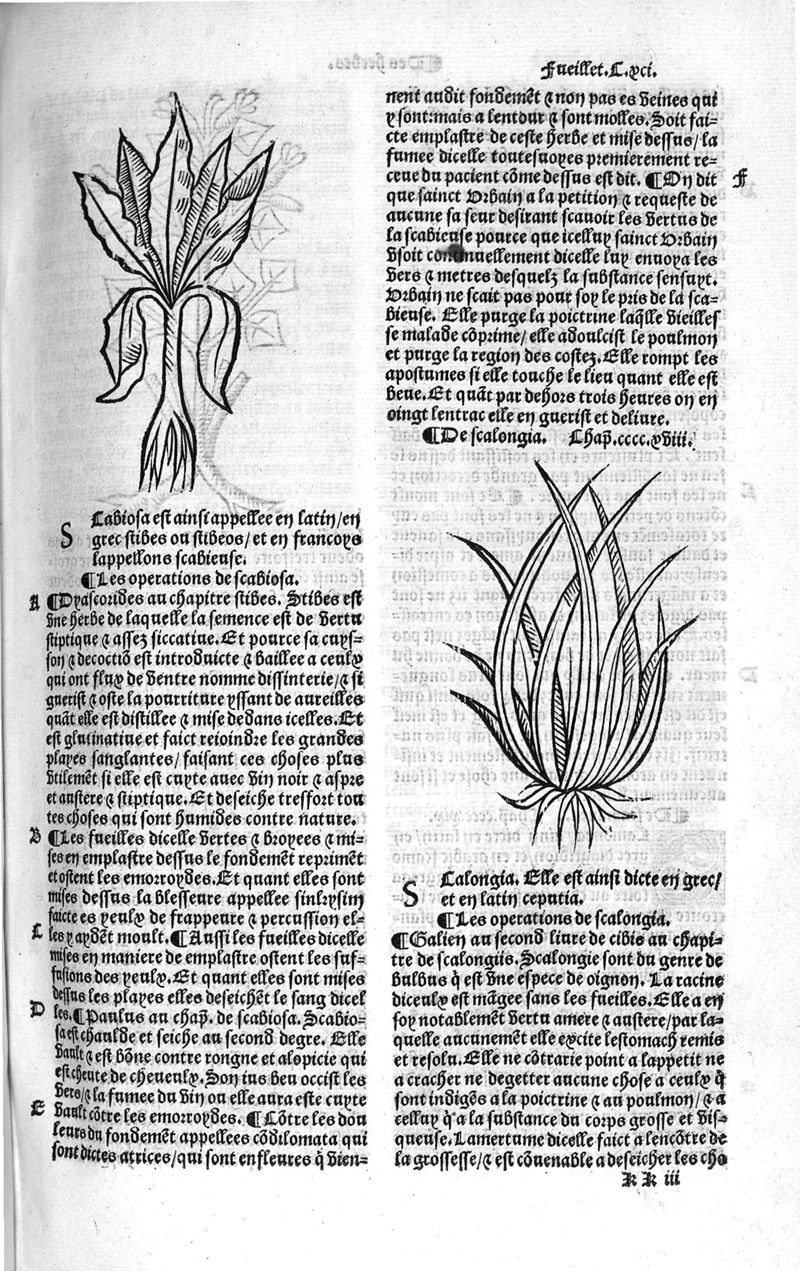 Fueillet.C.xci.
S Cabiosa est ainsi appellee en latin/en
grec stibes ou stibeos/ et en francoys
lappellons scabieuse.
¶Les operations de scabiosa.
A ¶Dyascorides au chapitre stibes. Stibes est
vne herbe de laquelle la semence est de vertu
stiptique ⁊ assez siccatiue. Et pource sa cuys-
son ⁊ decoctiō est introduicte ⁊ baillee a ceulx
qui ont flux de ventre nomme dissinterie/ ⁊ si
guerist ⁊ oste la pourriture yssant de aureilles
quāt elle est distillee ⁊ mise dedans icelles. Et
est glutinatiue et faict reioindre les grandes
playes sanglantes/ faisant ces choses plus
vtilemēt si elle est cuyte auec vin noir ⁊ aspre
et austere ⁊ stiptique. Et deseiche tresfort tou
tes choses qui sont humides contre nature.
B ¶Les fueilles dicelle vertes ⁊ broyees ⁊ mi-
ses en emplastre dessus le fondemēt reprimēt
et ostent les emorroydes. Et quant elles sont
mises dessus la blesseure appellee sinlxysim
faicte es yeulx de frappeure ⁊ percussion el-
C les y aydēt moult. ¶Aussi les fueilles dicelle
mises en maniere de emplastre ostent les suf-
fusions des yeulx. Et quant elles sont mises
dessus les playes elles deseichēt le sang dicel
D les. ¶Paulus au chap̄. de scabiosa. Scabio-
sa est chaulde et seiche au second degre. Elle
vault ⁊ est bōne contre rongne et alopicie qui
est cheute de cheueulx. Son ius beu occist les
vers/ ⁊ la fumee du vin ou elle aura este cuyte
E vault cōtre les emorroydes. ¶Cōtre les dou
leurs du fondemēt appellees cōdilomata qui
sont dictes atrices/ qui sont enfleures q̄ vien-
nent audit fondemēt ⁊ non pas es veines qui
y sont: mais a lentour ⁊ sont molles. Soit fai-
cte emplastre de ceste herbe et mise dessus/ la
fumee dicelle toutesuoyes premierement re-
ceue du pacient cōme dessus est dit. ¶On dit F
que sainct Vrbain a la petition ⁊ requeste de
aucune sa seur desirant scauoir les vertus de
la scabieuse pource que icelluy sainct Vrbain
vsoit continuellement dicelle luy enuoya les
vers ⁊ metres desquelz la substance sensuyt.
Vrbain ne scait pas pour soy le pris de la sca-
bieuse. Elle purge la poictrine laq̄lle vieilles
se malade cōprime/ elle adoulcist le poulmon
et purge la region des costez. Elle rompt les
apostumes si elle touche le lieu quant elle est
beue. Et quāt par dehors trois heures on en
oingt lentrac elle en guerist et deliure.
¶De scalongia. Chap̄. cccc. xviii.
S Calongia. Elle est ainsi dicte en grec/
et en latin ceputia.
¶Les operations de scalongia.
¶Galien au second liure de cibis au chapi-
tre de scalongiis. Scalongie sont du genre de
bulbus q̄ est vne espece de oignon. La racine
diceulx est māgee sans les fueilles. Elle a en
soy notablemēt vertu amere ⁊ austere/ par la-
quelle aucunemēt elle excite lestomach remis
et resolu. Elle ne cōtrarie point a lappetit ne
a cracher ne degetter aucune chose a ceulx q̄
sont indigēs a la poictrine ⁊ au poulmon/ ⁊ a
celluy q̄ a la substance du corps grosse ⁊ vis-
queuse. Lamertume dicelle faict a lencōtre de
la grossesse/ ⁊ est cōuenable a deseicher les cho
KK iii